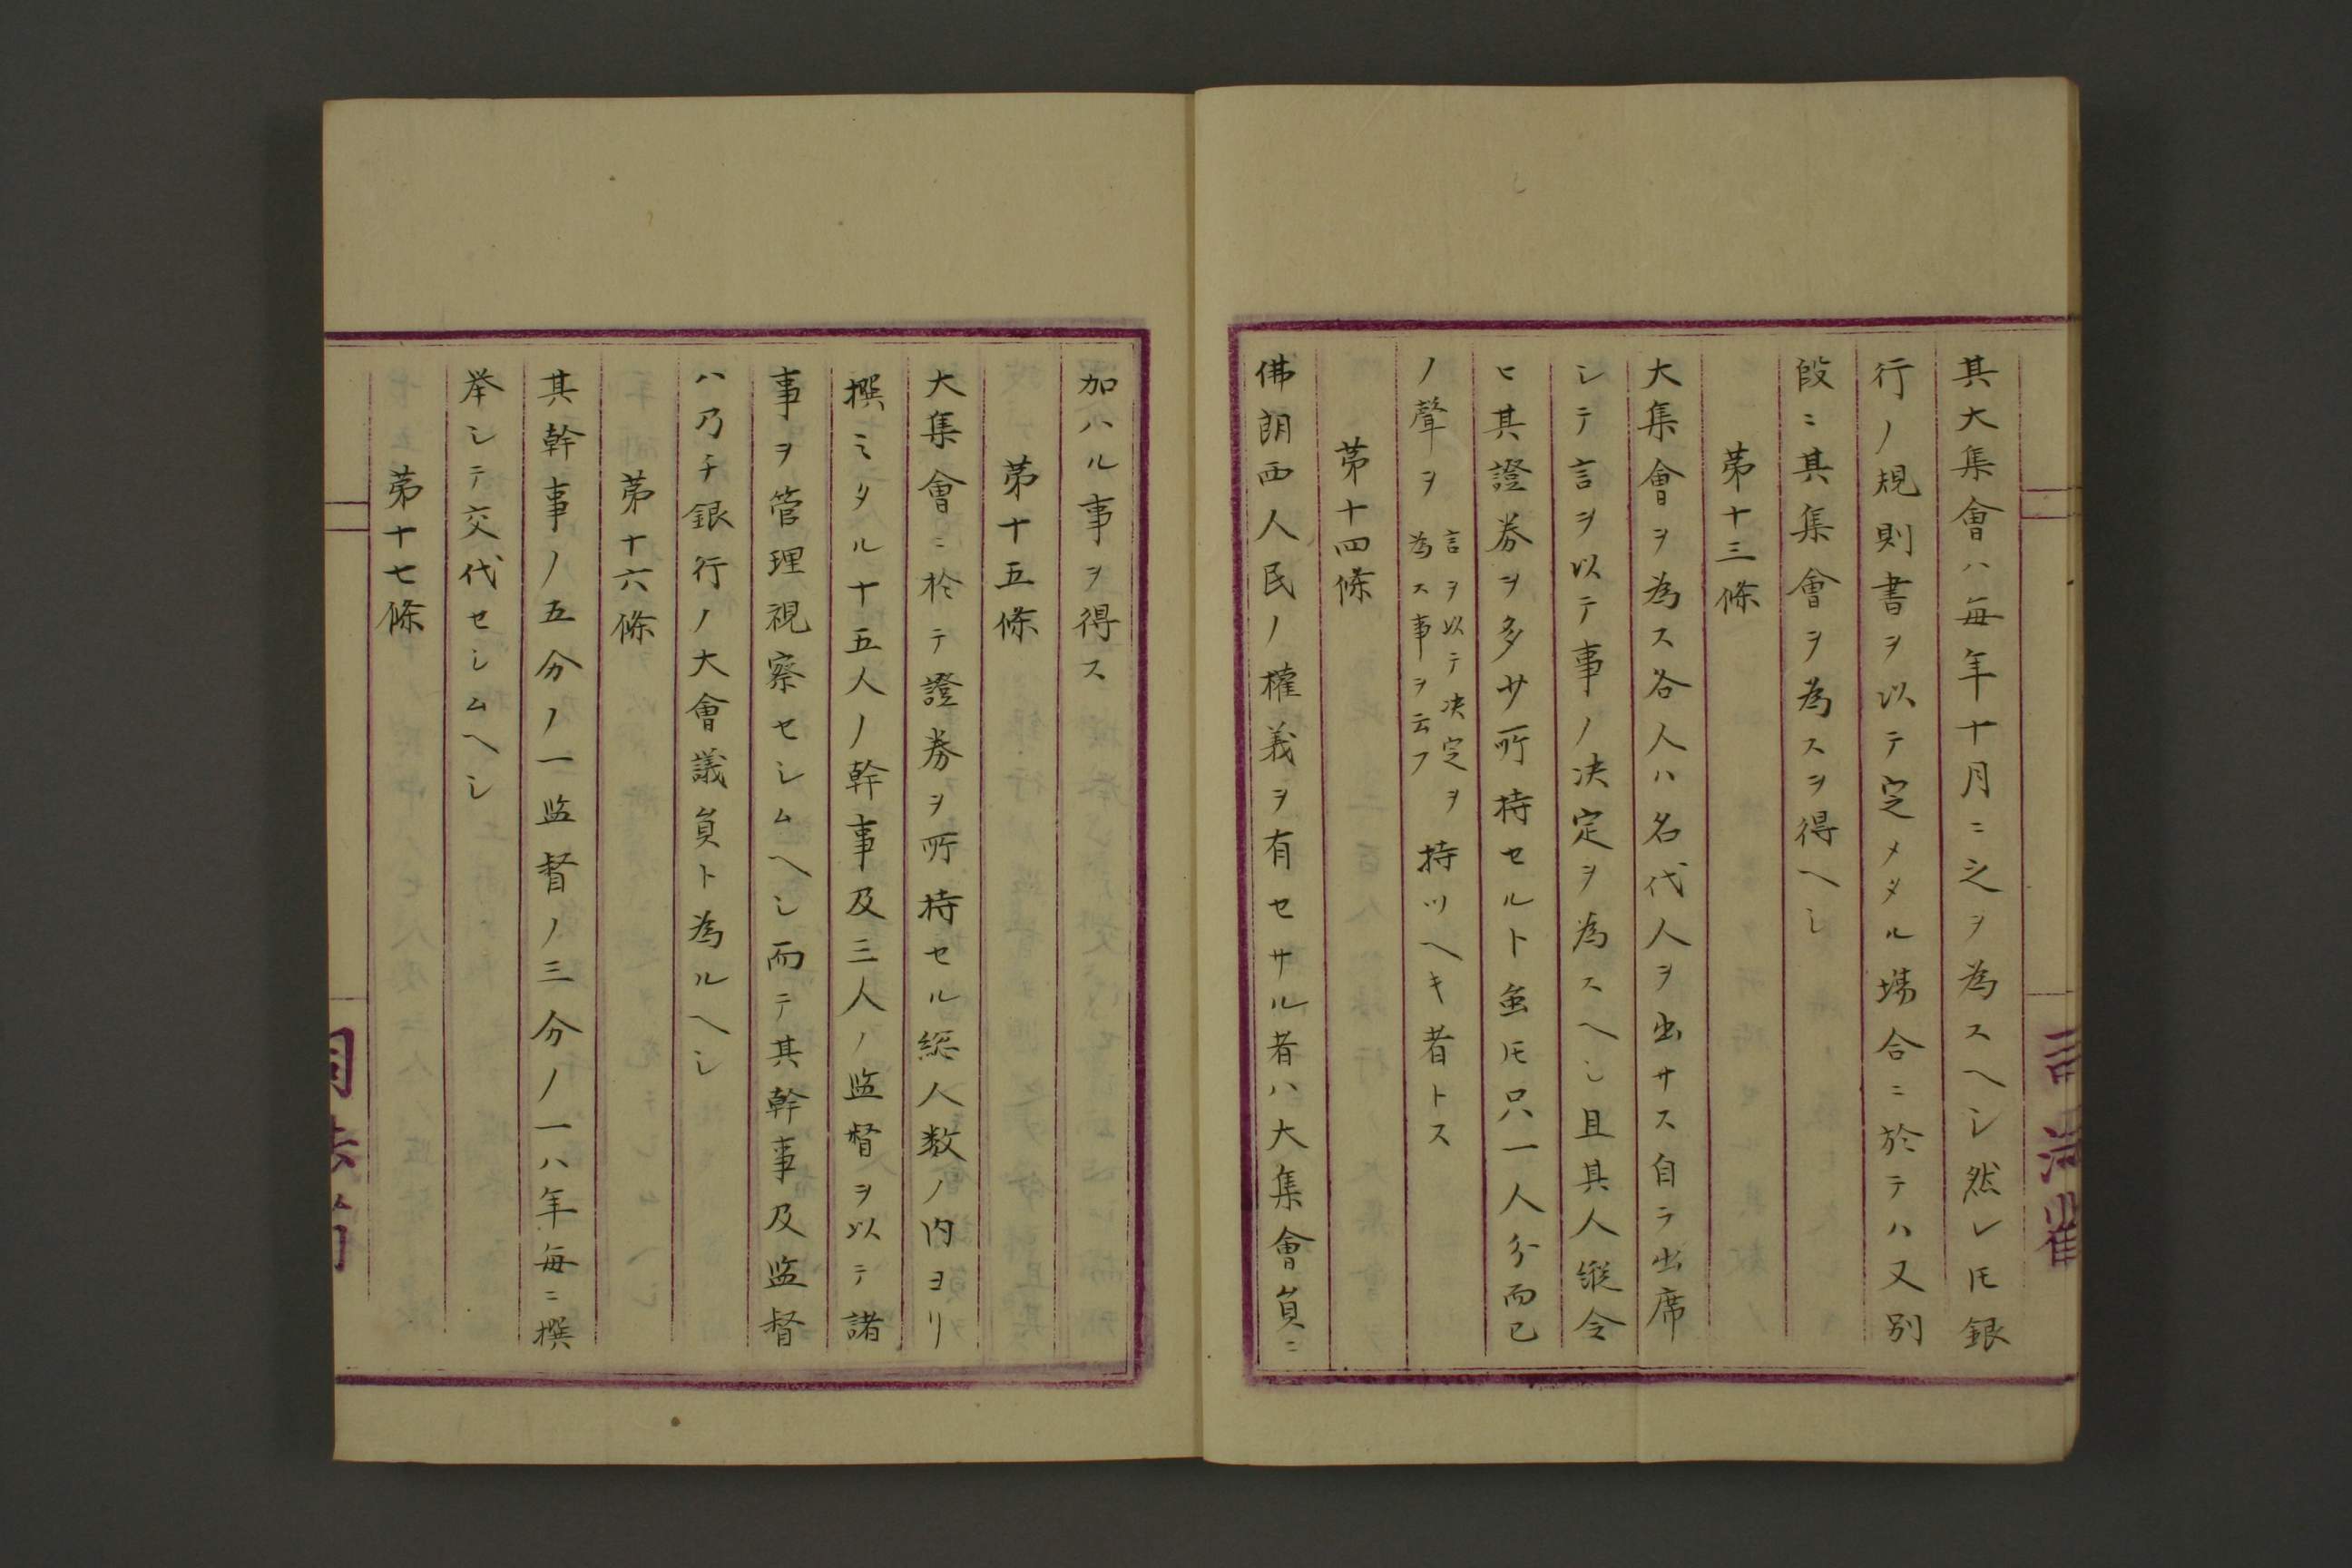 其大集會ハ毎年十月ニ之ヲ為スヘシ然レ𪜈銀
行ノ規則書ヲ以テ定メタル塲合ニ於テハ又別
段ニ其集會ヲ為スヲ得ヘシ
第十三條
大集會ヲ為ス各人ハ名代人ヲ出サス自ラ出席
シテ言ヲ以テ事ノ决定ヲ為スヘシ且其人縦令
ヒ其證券ヲ多少所持セルト虽𪜈只一人分而已
ノ聲ヲ
言ヲ以テ决定ヲ
為ス事ヲ云フ
持ツヘキ者トス
第十四條
佛朗西人民ノ權義ヲ有セサル者ハ大集會員ニ
加ハル事ヲ得ス
第十五條
大集會ニ於テ證券ヲ所持セル総人数ノ内ヨリ
撰ミタル十五人ノ幹事及三人ノ监督ヲ以テ諸
事ヲ管理視察セシムヘシ而テ其幹事及监督
ハ乃チ銀行ノ大會議員ト為ルヘシ
第十六條
其幹事ノ五分ノ一监督ノ三分ノ一ハ年毎ニ撰
挙シテ交代セシムヘシ
第十七條